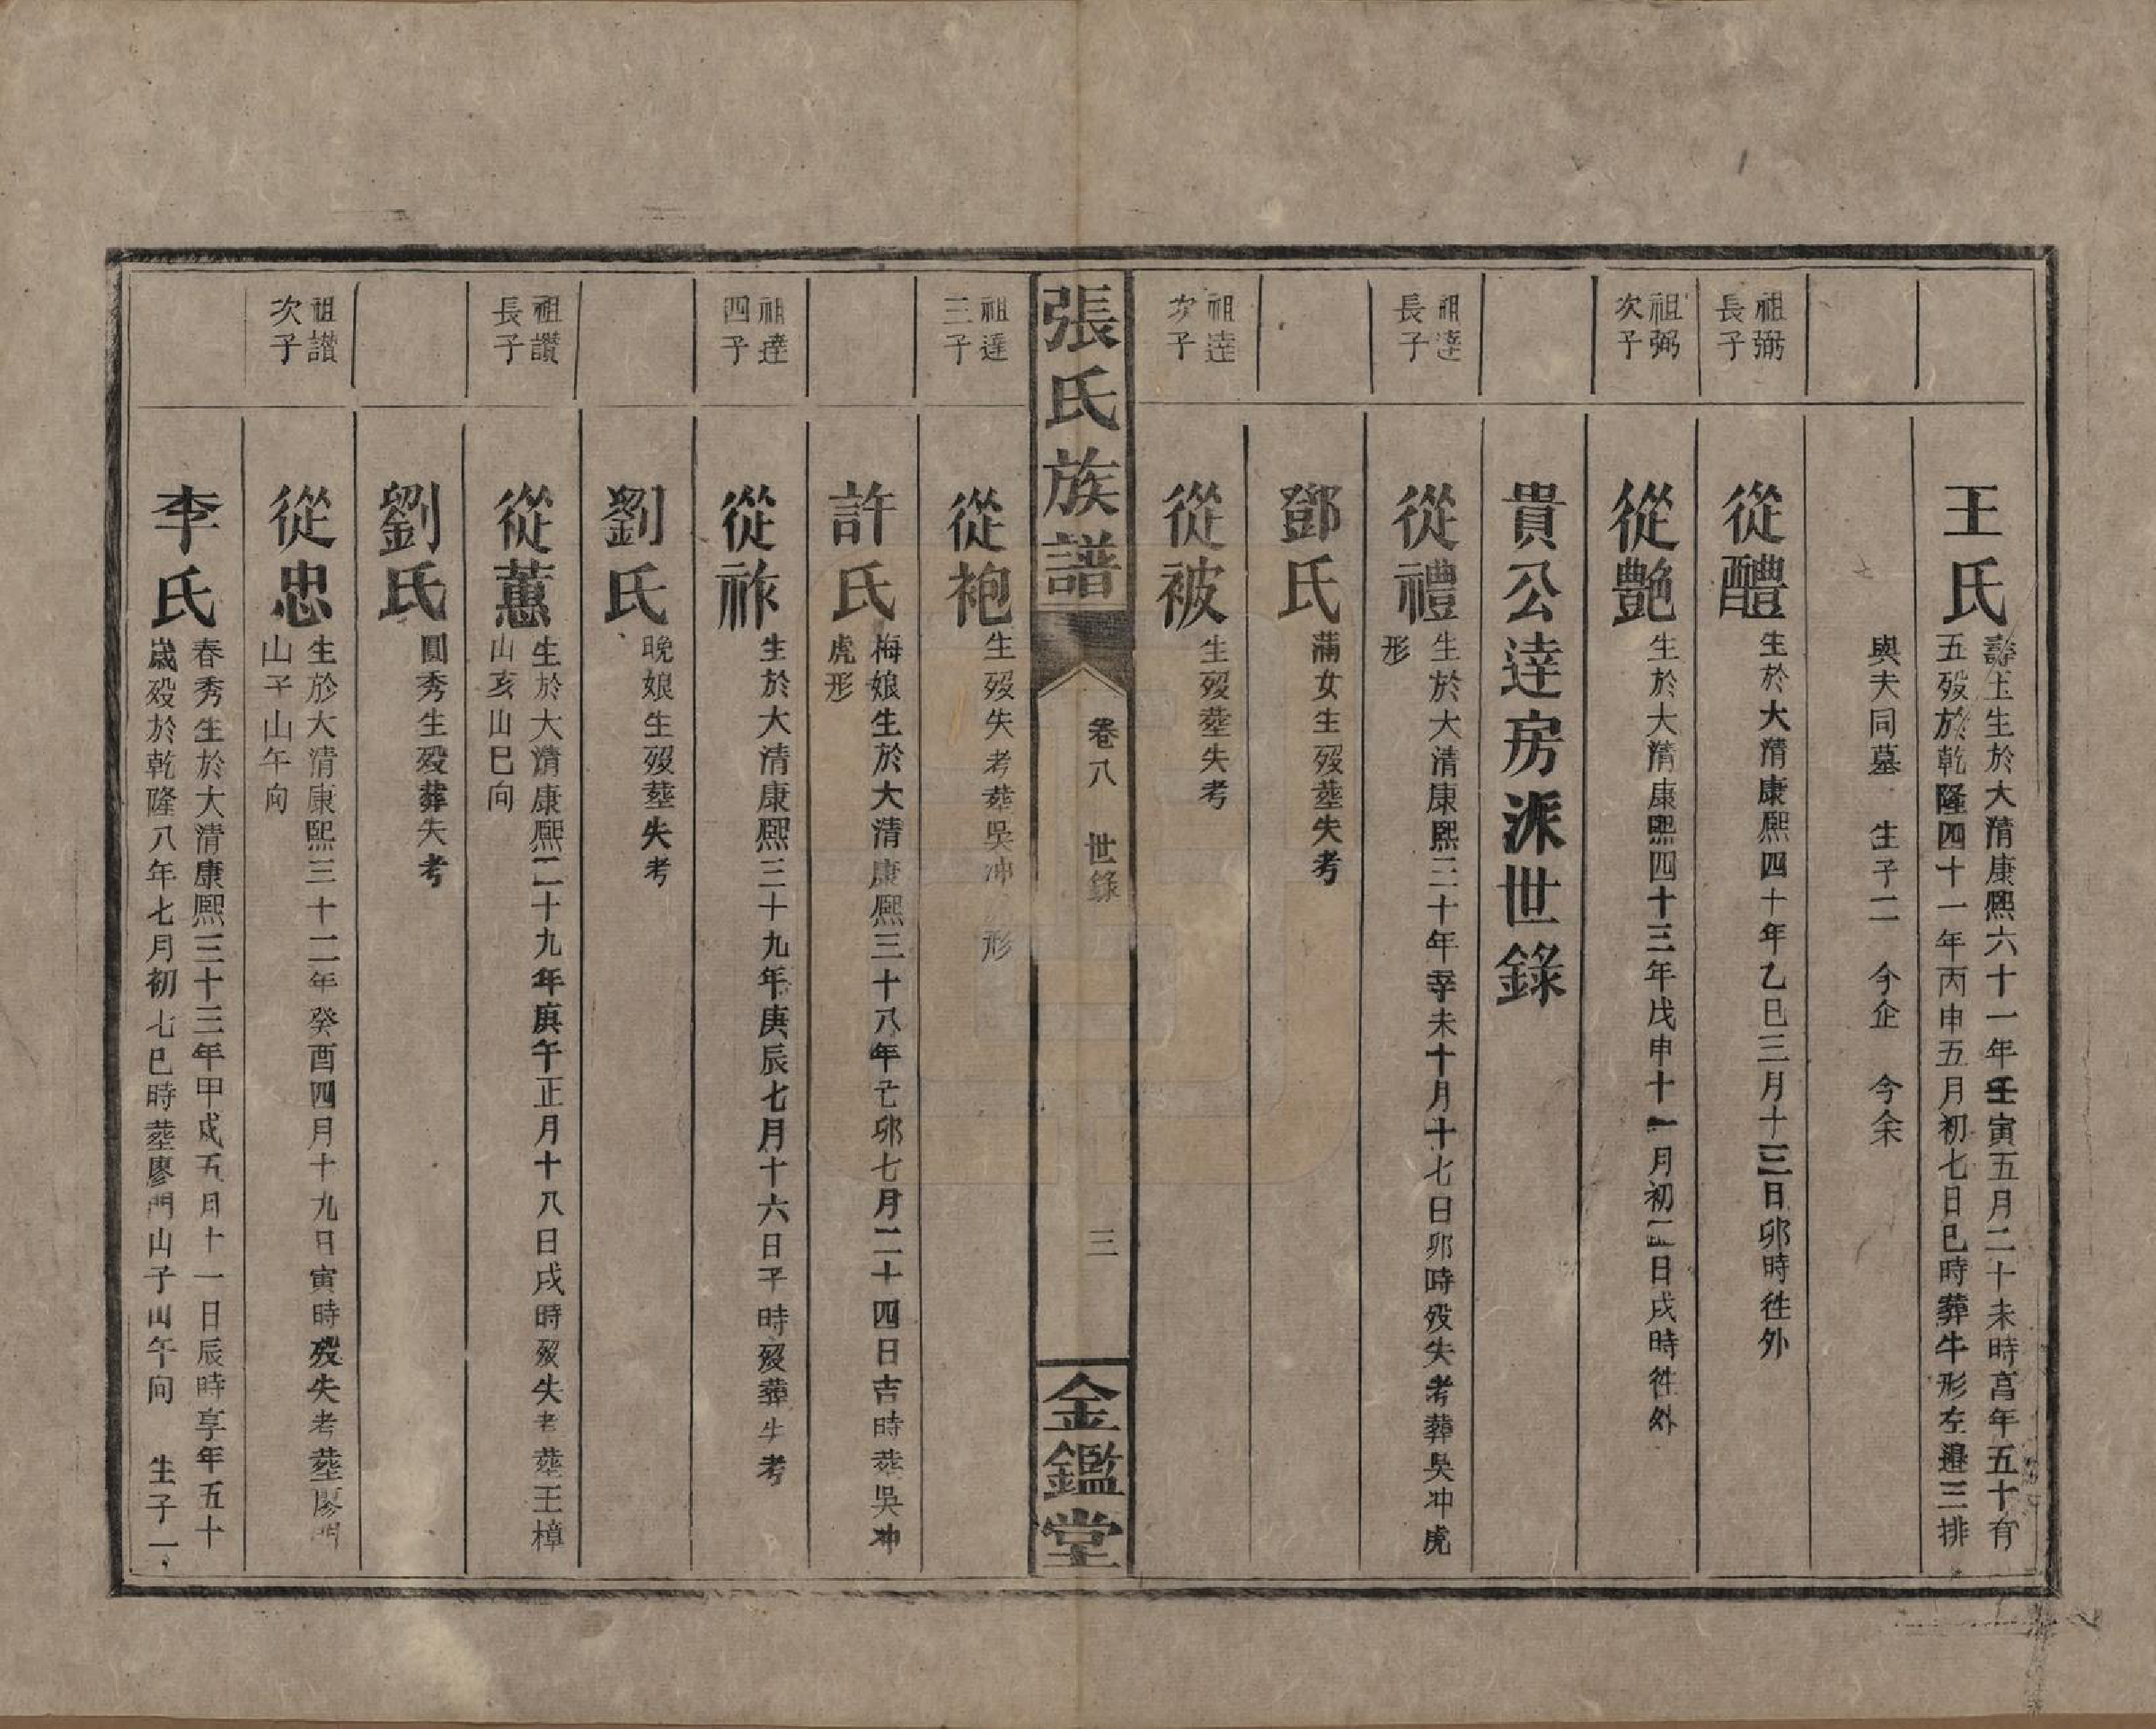 王氏
壽玉生於大清康熙六十一年壬寅五月二十未時享年五十有
五歿於乾隆四十一年丙申五月初七日巳時葬牛形左邉三排
與夫同墓 生子二 今企 今余
祖弼
長子
從醴
生於大清康熙四十年乙巳三月十三日卯時徃外
祖弼
次子
從艷
生於大清康熙四十三年戊申十一月初二日戌時徃外
貴公逹房派世錄
祖逹
長子
從禮
生於大清康熙三十年辛未十月十七日卯時歿失考葬吳冲虎
形
鄧氏
滿女生歿塟失考
祖逹
次子
從被
生歿塟失考
張氏族譜
卷八 世錄
三
金鑑堂
祖逹
三子
從袍
生歿失考塟吳冲 形
許氏
梅娘生於大清康熙三十八年己卯七月二十四日吉時塟吳冲
虎形
祖逹
四子
從祚
生於大清康熙三十九年庚辰七月十六日 時歿葬失考
劉氏
晩娘生歿塟失考
祖讚
長子
從蕙
生於大清康熙二十九年庚午正月十八日戌時歿失考塟王樟
山亥山巳向
劉氏
圓秀生歿葬失考
祖讚
次子
從忠
生於大清康熙三十二年癸酉四月十九日寅時歿失考塟廖門
山子山午向
李氏
春秀生於大清康熙三十三年甲戌五月十一日辰時享年五十
歲歿於乾隆八年七月初七巳時塟廖門山子山午向 生子一